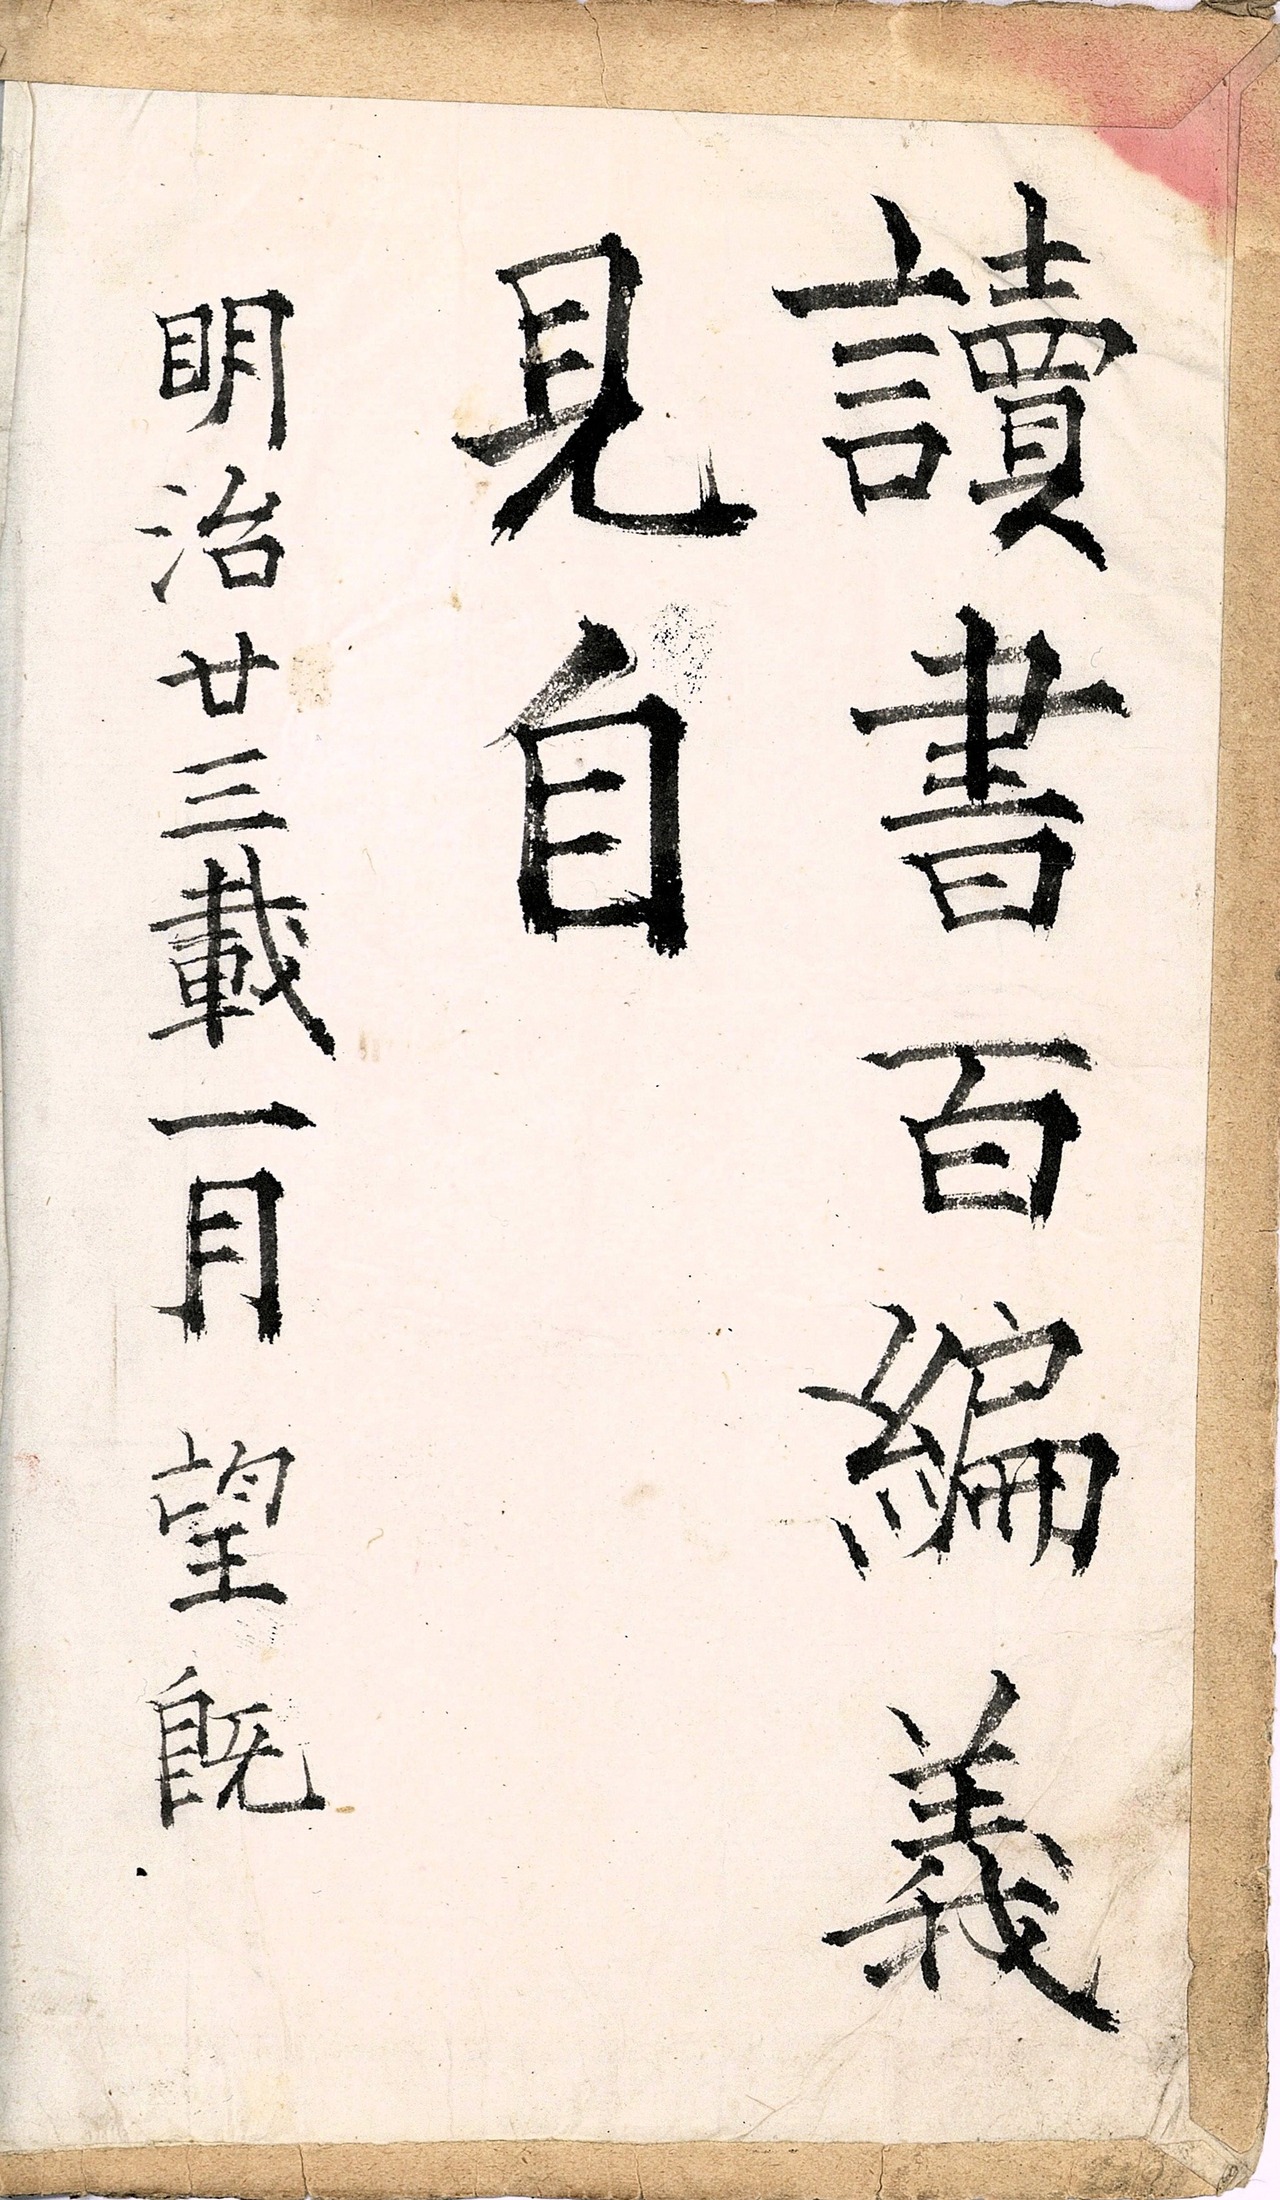 讀書百編義
見自
明治廿三載一月望既